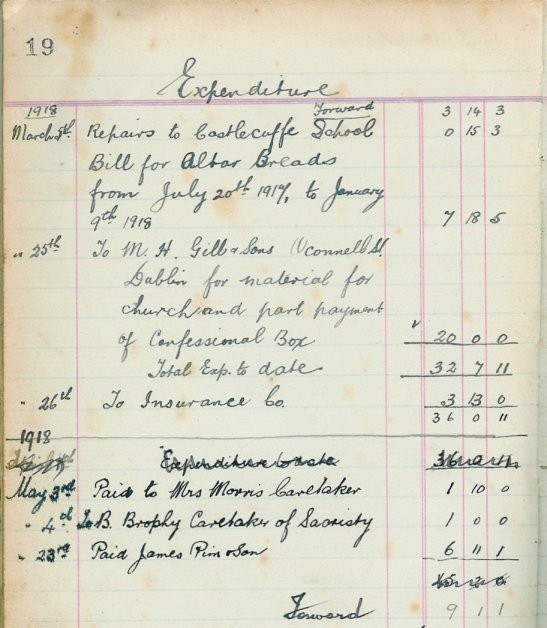 19
Expenditure
1918 Forward 3 14 3
March 5th Repairs to Castlecuffe School 0 15 3
Bill for Altar Breads
from July 20th 1917, to January
9th 1918 7 18 5
" 25th To M. H. Gill & Sons O'Connell St.
Dublin for material for
church and part payment
of Confessional Box 20 0 0
Total Exp. to date 32 7 11
" 26th To Insurance Co. 3 13 0
36 0 11
1918
Expenditure to date 36 0 11
May 3rd Paid to Mrs Morris Caretaker 1 10 0
" 4th To B. Brophy Caretaker of Sacristy 1 0 0
" 23rd Paid James Pim & Son 6 11 1
Forward 9 1 1